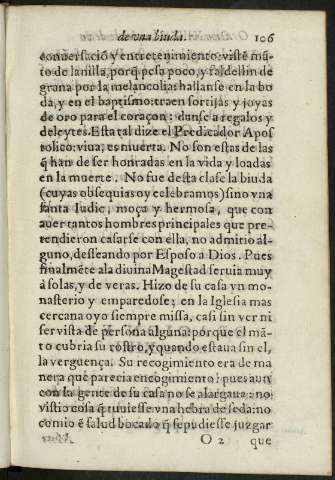 de vna biuda. 106
conuersació y entretenimiento: visté mā-
to de lanilla, porq̄ pesa poco, y faldellin de
grana por la melancolia: hallanse en la bo
da, y en el baptismo: traen sortijas y joyas
de oro para el coraçon: danse a regalos y
deleytes. Esta tal dize el Predicador Apos
tolico: viua, es muerta. No son estas de las
q̄ han de ser honradas en la vida y loadas
en la muerte. No fue desta clase la biuda
(cuyas obsequias oy celebramos) sino vna
santa Iudic, moça y hermosa, que con
auer tantos hombres principales que pre-
tendieron casarse con ella, no admitio al-
guno, desseando por Esposo a Dios. Pues
finalméte a la diuina Magestad seruia muy
à solas, y de veras. Hizo de su casa vn mo-
nasterio y emparedose; en la Iglesia mas
cercana oyo siempre missa, casi sin ver ni
ser vista de persona alguna: porque el mā-
to cubria su rostro, y quando estaua sin el,
la verguença. Su recogimiento era de ma
nera que parecia encogimiento: pues aun
con la gente de su casa no se alargaua: no
vistio cosa q̄ tuuiesse vna hebra de seda: no
comio é salud bocado q̄ se pudiesse juzgar
O 2 que